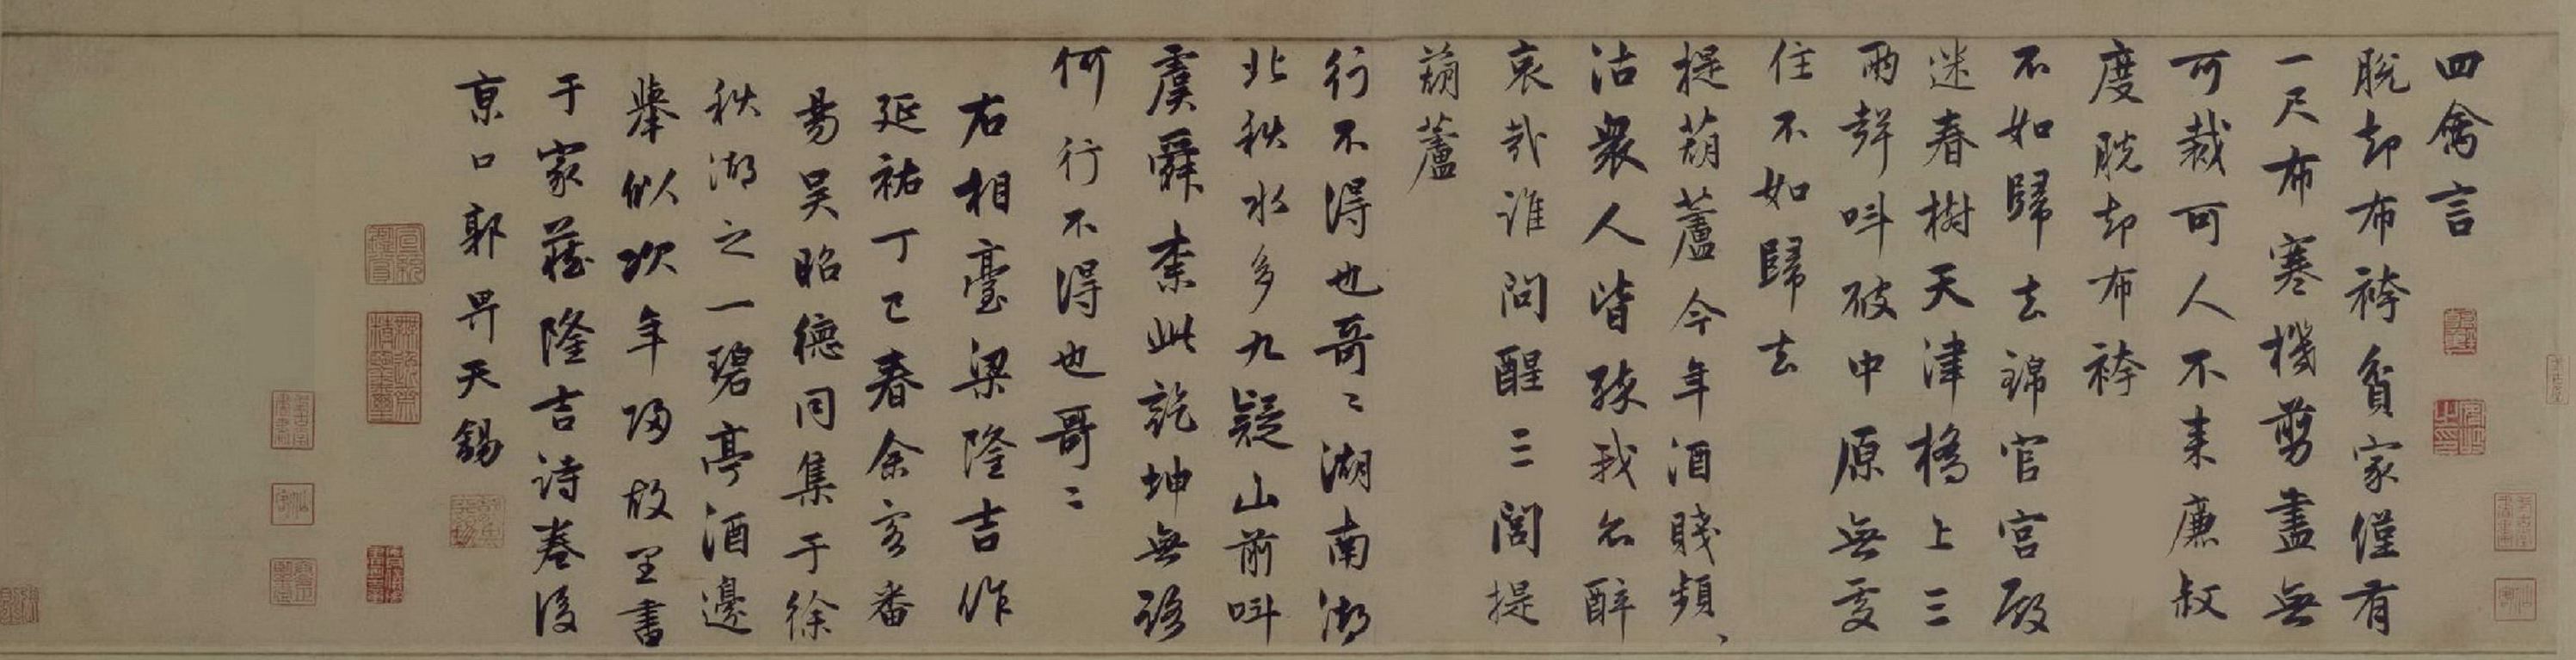 四禽言
脫却布袴貧家僅有
一尺布寒機剪盡無
可裁可人不來廉叔
度脫却布袴
不如歸去錦官宮殿
迷春樹天津橋上三
兩聲呌破中原無處
住不如歸去
提葫蘆今年酒賤頻、
沽衆人皆殊我名醉
哀哉誰問醒三閭提
葫蘆
行不得也哥〻湖南湖
北秋水多九疑山前呌
虞舜柰此乾坤無路
何行不得也哥〻
右相臺梁隆吉作
延祐丁巳春余客番
昜吴昭德同集于徐
秋湖之一碧亭酒邊
舉似次年歸故里書
于家藏隆吉詩卷後
京口郭畀天錫